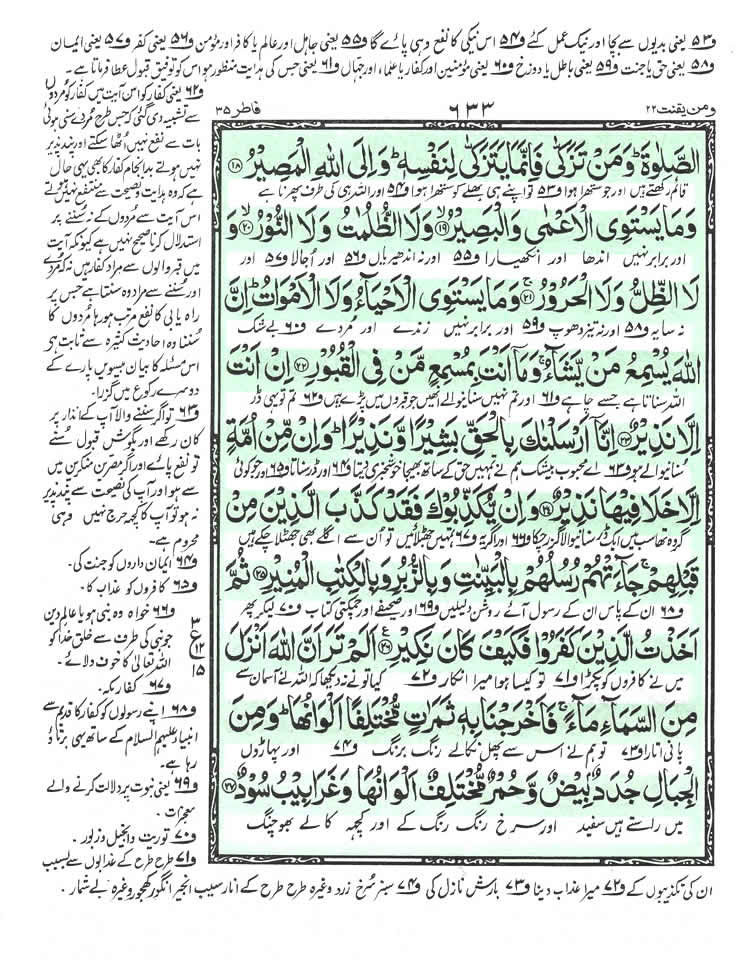 و۵۳ یعنی بدیوں سے بچا اور نیک عمل کئے و۵۴ اس نیکی کا نفع وہی پائے گا و۵۵ یعنی جاہل اور عالم یا کافر اور مؤمن و۵۶ یعنی کفر و۵۷ یعنی ایمان
و۵۸ یعنی حق یا جنت و۵۹ یعنی باطل یا دوزخ و۶۰ یعنی مؤمنین اور کفار یا علماء اور جہال و۶۱ یعنی جس کی ہدایت منظور ہو اس کو توفیق قبول عطا فرماتا ہے۔
ومن یقنت ۲۲
۶۳۳
فاطر ۳۵
الصَّلٰوةَ ؕ وَمَنْ تَزَكّٰى فَاِنَّمَا يَتَزَكّٰى لِنَفْسِهٖ ؕ وَاِلَى اللّٰهِ الْمَصِيْرُ ﴿۱۸﴾
قائم رکھتے ہیں اور جو ستھرا ہوا و۵۳ تو اپنے ہی بھلے کو ستھرا ہوا و۵۴ اور اللہ ہی کی طرف پھرنا ہے
وَمَا يَسْتَوِى الْاَعْمٰى وَالْبَصِيْرُ ﴿۱۹﴾ وَلَا الظُّلُمٰتُ وَلَا النُّوْرُ ﴿۲۰﴾ وَ
اور برابر نہیں اندھا اور انکھیارا و۵۵ اور نہ اندھیریاں و۵۶ اور اُجالا و۵۷ اور
لَا الظِّلُّ وَلَا الْحَرُوْرُ ﴿۲۱﴾ وَمَا يَسْتَوِى الْاَحْيَآءُ وَلَا الْاَمْوَاتُ ؕ اِنَّ
نہ سایہ و۵۸ اور نہ تیز دھوپ و۵۹ اور برابر نہیں زندے اور مُردے و۶۰ بے شک
اللّٰهَ يُسْمِعُ مَنْ يَّشَآءُ ۚ وَمَاۤ اَنْتَ بِمُسْمِعٍ مَّنْ فِى الْقُبُوْرِ ﴿۲۲﴾ اِنْ اَنْتَ
اللہ سناتا ہے جسے چاہے و۶۱ اور تم نہیں سنانے والے انھیں جو قبروں میں پڑے ہیں و۶۲ تم تو یہی ڈر
اِلَّا نَذِيْرٌ ﴿۲۳﴾ اِنَّاۤ اَرْسَلْنٰكَ بِالْحَقِّ بَشِيْرًا وَّنَذِيْرًا ؕ وَاِنْ مِّنْ اُمَّةٍ
سنانے والے ہو و۶۳ اے محبوب بیشک ہم نے تمہیں حق کے ساتھ بھیجا خوشخبری دیتا و۶۴ اور ڈر سناتا و۶۵ اور جو کوئی
اِلَّا خَلَا فِيْهَا نَذِيْرٌ ﴿۲۴﴾ وَاِنْ يُّكَذِّبُوْكَ فَقَدْ كَذَّبَ الَّذِيْنَ مِنْ
گروہ تھا سب میں ایک ڈر سنانیوالا گزر چکا و۶۶ اور اگر یہ و۶۷ تمہیں جھٹلائیں تو اُن سے اگلے بھی جھٹلا چکے ہیں
قَبْلِهِمْ ۚ جَآءَتْهُمْ رُسُلُهُمْ بِالْبَيِّنٰتِ وَبِالزُّبُرِ وَبِالْكِتٰبِ الْمُنِيْرِ ﴿۲۵﴾ ثُمَّ
و۶۸ ان کے پاس ان کے رسول آئے روشن دلیلیں و۶۹ اور صحیفے اور چمکتی کتاب و۷۰ لیکر پھر
اَخَذْتُ الَّذِيْنَ كَفَرُوْا فَكَيْفَ كَانَ نَكِيْرِ ﴿۲۶﴾ اَلَمْ تَرَ اَنَّ اللّٰهَ اَنْزَلَ
میں نے کافروں کو پکڑا و۷۱ تو کیسا ہوا میرا انکار و۷۲ کیا تو نے نہ دیکھا کہ اللہ نے آسمان سے
مِنَ السَّمَآءِ مَآءً ۚ فَاَخْرَجْنَا بِهٖ ثَمَرٰتٍ مُّخْتَلِفًا اَلْوَانُهَا ؕ وَمِنَ
پانی اتارا و۷۳ تو ہم نے اس سے پھل نکالے رنگ برنگ و۷۴ اور پہاڑوں
الْجِبَالِ جُدَدٌۢ بِيْضٌ وَّحُمْرٌ مُّخْتَلِفٌ اَلْوَانُهَا وَغَرَابِيْبُ سُوْدٌ ﴿۲۷﴾
میں راستے ہیں سفید اور سرخ رنگ رنگ کے اور کچھ کالے بھوچنگ
و۶۲ یعنی کفار کو اس آیت میں کفار کو مُردوں
سے تشبیہ دی گئی کہ جس طرح مُردے سنی ہوئی
بات سے نفع نہیں اُٹھا سکتے اور پند پذیر
نہیں ہوتے بد انجام کفار کا بھی یہی حال
ہے کہ وہ ہدایت و نصیحت سے منتفع نہیں ہوتے
اس آیت سے مُردوں کے نہ سُننے پر
استدلال کرنا صحیح نہیں ہے کیونکہ آیت
میں قبر والوں سے مراد کفار ہیں نہ کہ مُردے
اور سُننے سے مراد وہ سننا ہے جس پر
راہ یابی کا نفع مرتب ہو رہا مُردوں کا
سُننا وہ احادیث کثیرہ سے ثابت ہے
اس مسئلہ کا بیان بیسویں پارے کے
دوسرے رکوع میں گزرا۔
و۶۳ تو اگر سننے والا آپ کے انذار پر
کان رکھے اور بگوش قبول سُنے
تو نفع پائے اور اگر مصرین منکرین میں
سے ہو اور آپ کی نصیحت سے پند پذیر
نہ ہو تو آپ کا کچھ حرج نہیں وہی
محروم ہے۔
و۶۴ ایمان داروں کو جنت کی۔
و۶۵ کافروں کو عذاب کا۔
و۶۶ خواہ وہ نبی ہو یا عالم دین
جو نبی کی طرف سے خلق خدا کو
اللہ تعالٰی کا خوف دلائے۔
و۶۷ کفار مکہ۔
و۶۸ اپنے رسولوں کو کفار کا قدیم سے
انبیاء علیہم السلام کے ساتھ یہی برتاؤ
رہا ہے۔
و۶۹ یعنی نبوت پر دلالت کرنے والے
معجزات۔
و۷۰ توریت و انجیل و زبور۔
و۷۱ طرح طرح کے عذابوں سے بسبب
۳
ع
۱۲
۱۵
ان کی تکذیبوں کے و۷۲ میرا عذاب دینا و۷۳ بارش نازل کی و۷۴ سبز سُرخ زرد وغیرہ طرح طرح کے انار سیب انجیر انگور کھجور وغیرہ بے شمار۔